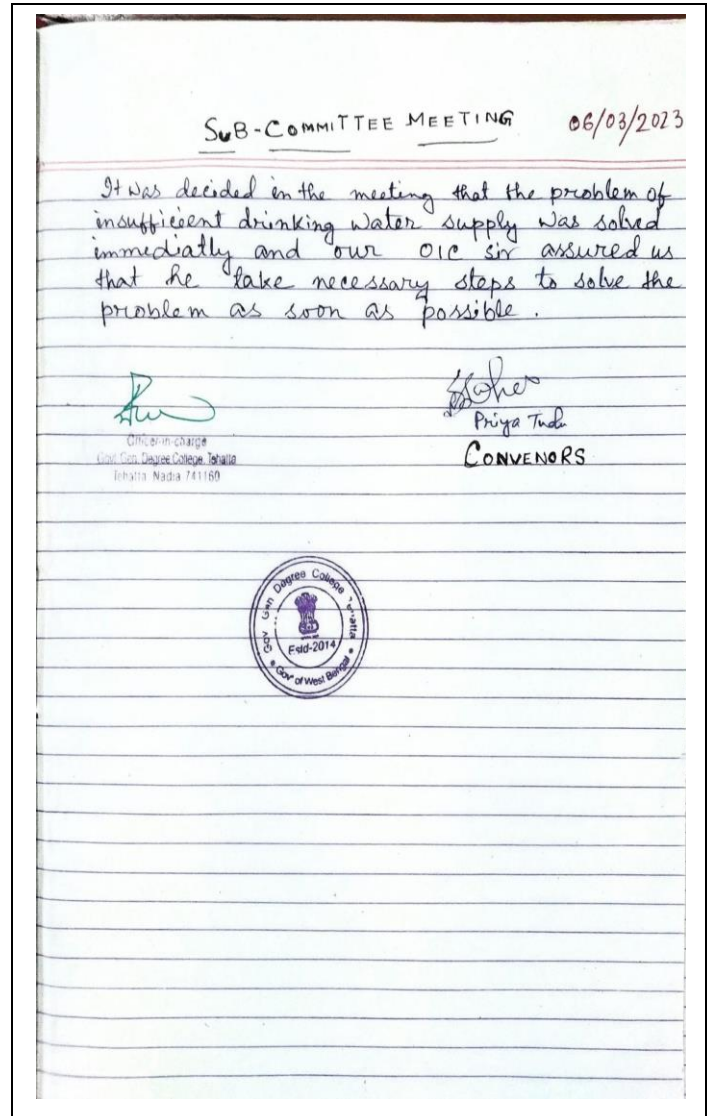 SUB-COMMITTEE MEETING 06/03/2023
It was decided in the meeting that the problem of
insufficient drinking water supply was solved
immediatly and our OIC sir assured us
that he take necessary steps to solve the
problem as soon as possible.
Priya Tudu
Officer-in-charge
Govt. Gen. Degree College, Tehatta
Tehatta Nadia 741160
CONVENORS
Gov Gen Degree College Tehatta
Estd-2014
Gov of West Bengal